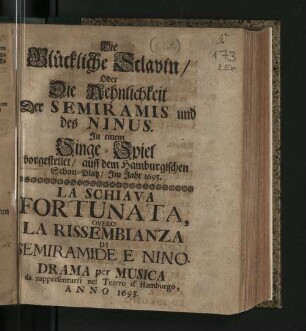 Die
Glückliche Sclavin/
Oder
Die Aehnlichkeit
Der SEMIRAMIS und
des NINUS.
In einem
Singe-Spiel
vorgestellet/ auff dem Hamburgischen
Schau-Platz/ Im Jahr 1693.
LA SCHIAVA
FORTUNATA,
OVERO
LA RISSEMBIANZA
DI
SEMIRAMIDE E NINO.
DRAMA per MUSICA
da rappresentarsi nel Teatro d'Hamburgo,
ANNO 1693.
173